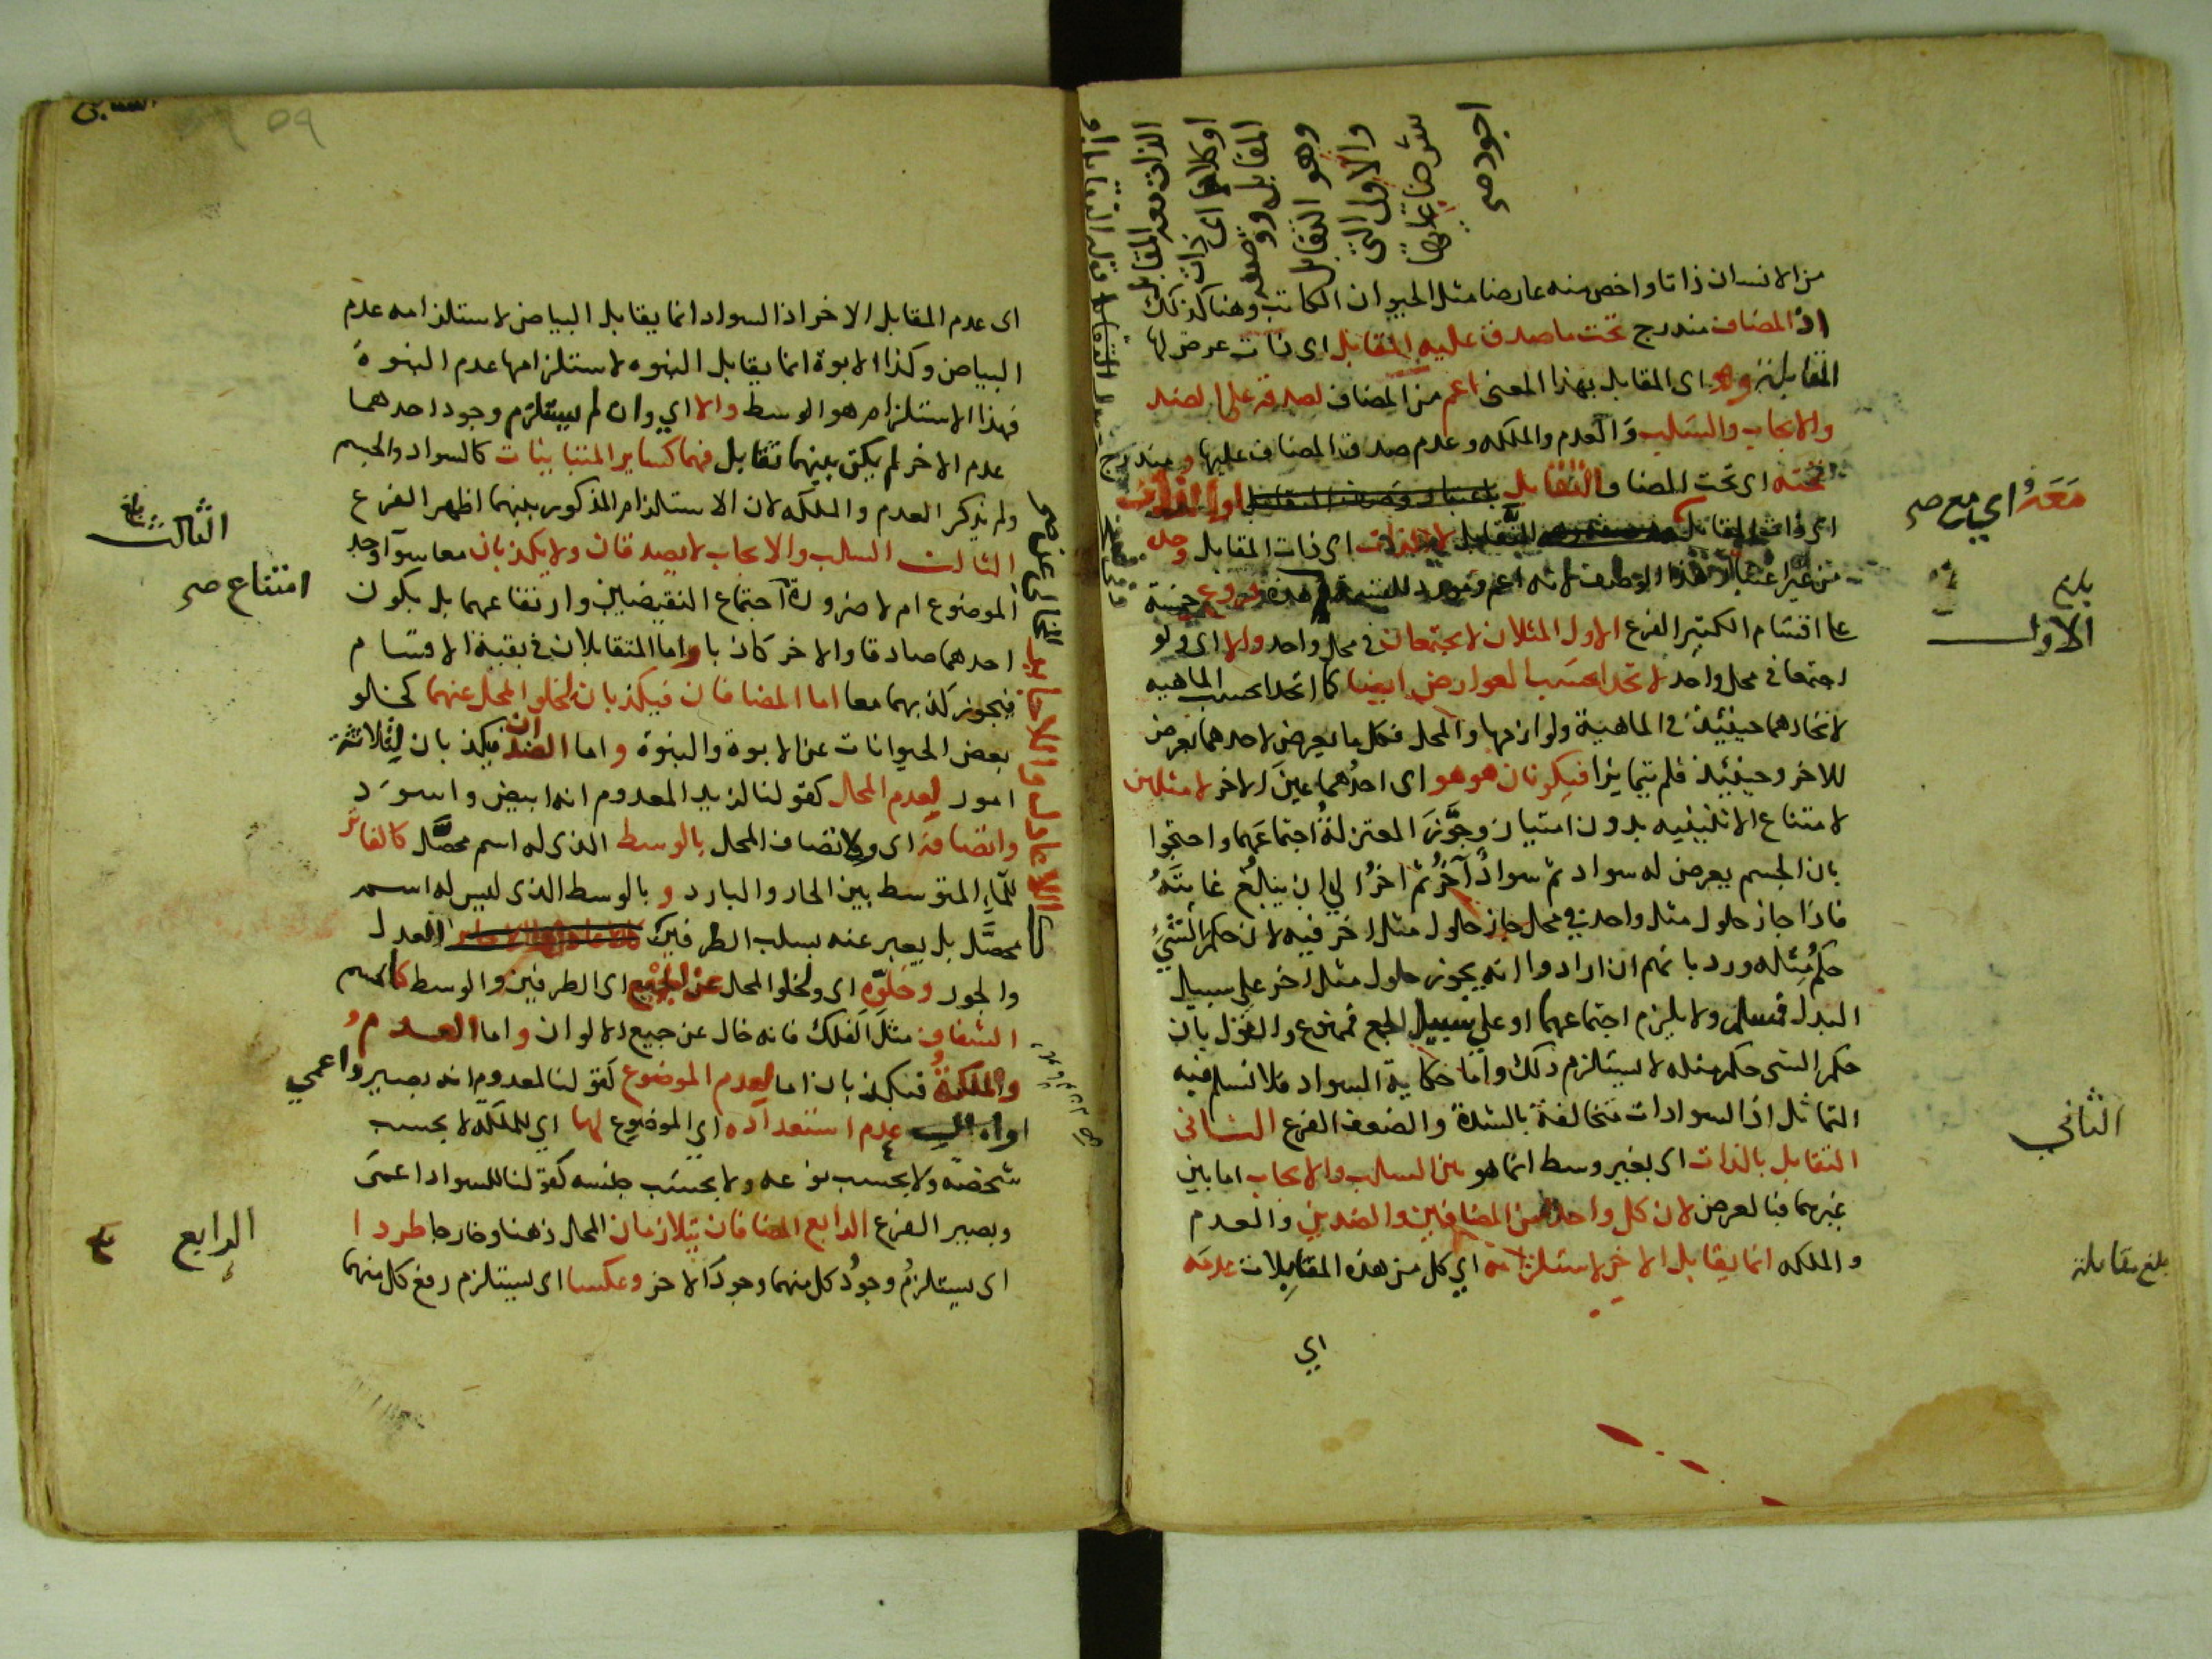 من الانسان ذاتا واخص منه عارضا مثل الحيوان الكاتب وهنا كذلك
اذ المضاف مندرج تحت ما صدق عليه المقابل اى ذات عرض لها
التقابل وهو اى المقابل بهذا المعنى اعم من المضاف لصدقه على الضد
والايجاب والسلب والعدم والملكه وعدم صدق المضاف عليها ومندرج
تحته اى تحت المضاف التقابل
اى ذات المقابل لا الذات اى ذات المقابل وحده
من غير اعتبار هذا الوصف لانه اعم فروع خمسة
على اقسام الكثير الفرع الاول المثلان لا يجتمعان في محل واحد والا اى ولو
اجتمعا في محل واحد لاتحدا بحسب العوارض ايضا كما اتحدا بحسب الماهيه
لاتحادهما حينئذ في الماهية ولوازمها والمحل فكل ما يعرض لاحدهما يعرض
للاخر وحينئذ فلم يتمايزا فيكونان هو هو اى احدهما عين الاخر لا مثلين
لامتناع الاثنينيه بدون امتياز وجوز المعتزلة اجتماعهما واحتجوا
بان الجسم يعرض له سواد ثم سواد آخر ثم اخر الي ان يبلغ غايته
فاذا جاز حلول مثل واحد في محل جاز حلول مثل اخر فيه لان حكم الشئ
حكم مثله ورد بانهم ان ارادوا انه يجوز حلول مثل اخر علي سبيل
البدل فمسلم ولا يلزم اجتماعهما او علي سبيل الجمع فممنوع والقول بان
حكم الشى حكم مثله لا يستلزم ذلك واما حكاية السواد فلا نسلم فيه
التماثل اذ السوادات متخالفة بالشدة والضعف الفرع الثانى
التقابل بالذات اى بغير وسط انما هو بين السلب والايجاب اما بين
غيرهما فبالعرض لان كل واحد من المضافين والضدين والعدم
والملكه انما يقابل الاخر لاستلزامه اي كل من هذه المقابلات عدمه
اي
اجود صح
معه اي مع صح
الاول
الثاني
بلغ مقابلة
اى عدم المقابل الاخر اذ السواد انما يقابل البياض لاستلزامه عدم
البياض وكذا الابوة انما يقابل البنوه لاستلزامها عدم البنوة
فهذا الاستلزام هو الوسط والا اي وان لم يستلزم وجود احدهما
عدم الاخر لم يكن بينهما تقابل فهما كساير المتباينات كالسواد والجسم
ولم يذكر العدم والملكه لان الاستلزام المذكور بينهما اظهر الفرع
الثالث السلب والايجاب لا يصدقان ولا يكذبان معا سوآ وجد
الموضوع ام لا ضرورة اجتماع النقيضين وارتفاعهما بل يكون
احدهما صادقا والاخر كاذبا واما المتقابلان في بقية الاقسام
فيجوز كذبهما معا اما المضافان فيكذبان لخلو المحل عنهما كخلو
بعض الحيوانات عن الابوة والبنوة واما الضدان فيكذبان لثلاثة
امور لعدم المحل كقولنا لزيد المعدوم انه ابيض واسود
واتصافه اى ولاتصاف المحل بالوسط الذى له اسم محصل كالفاتر
للماء المتوسط بين الحار والبارد وبالوسط الذى ليس له اسم
محصل بل يعبر عنه بسلب الطرفين العدل
والجور وخلوه اى ولخلو المحل عن الجميع اى الطرفين والوسط كالجسم
الشفاف مثل الفلك فانه خال عن جميع الالوان واما العدم
والملكة فيكذبان اما لعدم الموضوع كقولنا لمعدوم انه بصير واعمي
او عدم استعداده اي الموضوع لها اي للملكه لا بحسب
شخصه ولا بحسب نوعه ولا بحسب جنسه كقولنا للسواد اعمى
وبصير الفرع الرابع المضافان يتلازمان المحل ذهنا وخارجا طردا
اى يستلزم وجود كل منهما وجود الاخر وعكسا اى يستلزم رفع كل منهما
الثالث
امتناع صح
الرابع